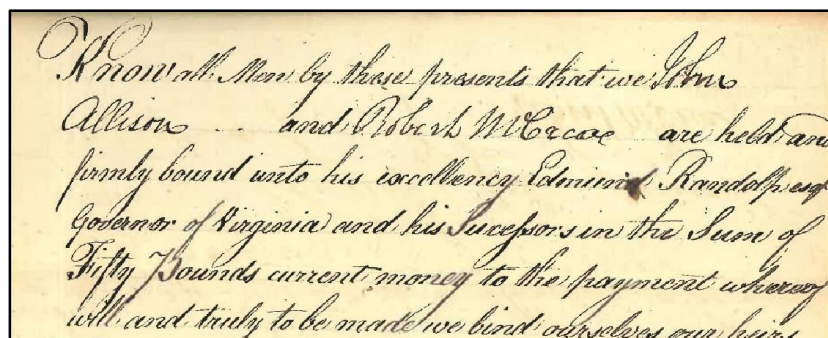 Know all Men by these presents that we John
Allison and Robert McCrcoe are held and
firmly bound unto his excellency Edmund Randolph esqr
Governor of Virginia and his Sucessors in the Sum of
Fifty Pounds current money to the payment whereof
will and truly to be made we bind ourselves our heirs